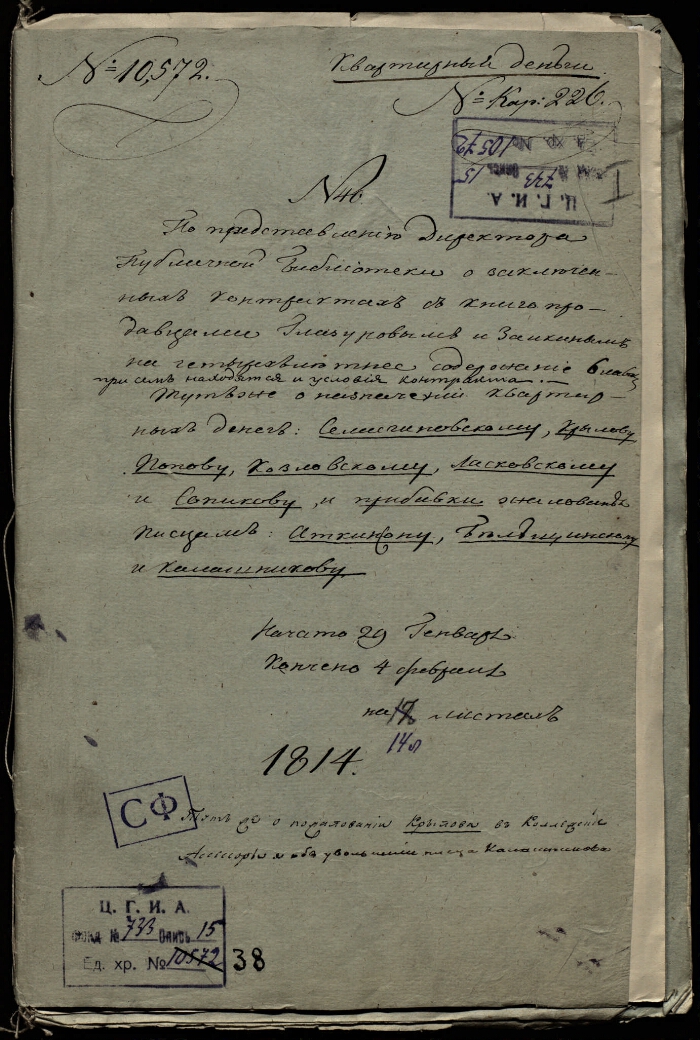 № 10,572.
Квартирныя деньги
№ Кар: 226.
Ц. Г. И. А.
733 15
10572
I
№ 46
По представленію Директора
Публичной Библіотеки о заключен-
ныхъ контрактахъ съ книгопро-
давцами Глазуновымъ и Заикинымъ
на четырехлѣтнее содержаніе 6 лавокъ
при семъ находятся и условія контракта. —
Тутъ же о назначеніи квартир-
ныхъ денегъ: Крылову
Попову, Козловскому, Ласковскому
и Сопикову, и прибавки жалованья
писцамъ:
и Калашникову
Начато 29 Генваря
Кончено 4 февраля
на листахъ
14 л
1814.
СФ
Тутъ же о пожалованіи Крылова въ Коллежскіе
Ассесоры и объ увольненіи писца Калашникова
Ц. Г. И. А.
Фонд № 733 Опись 15
Ед. хр. № 10572 38